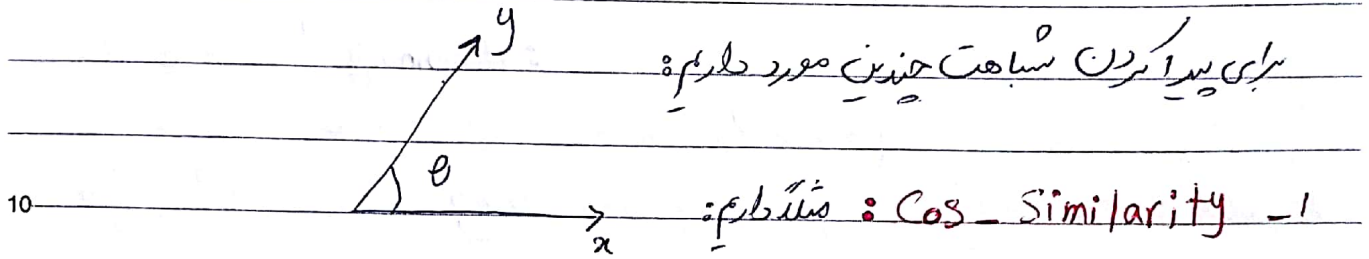 برای پیدا کردن شباهت چندین مورد داریم:
y
θ
1- Cos_Similarity : مثلاً داریم:
10
x